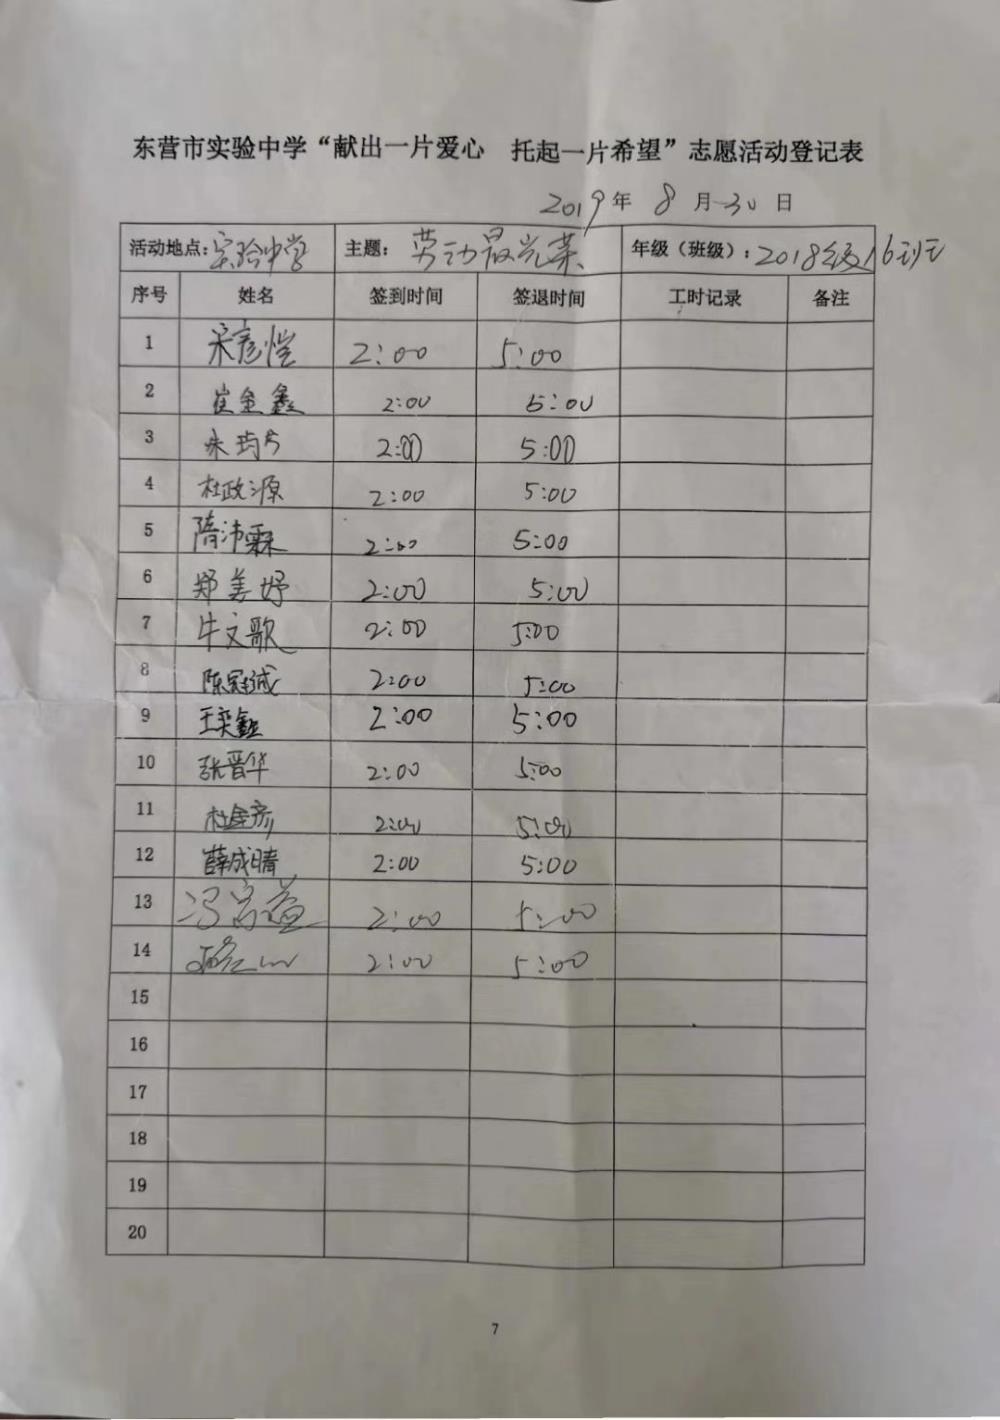 东营市实验中学“献出一片爱心 托起一片希望”志愿活动登记表
2019年 8 月 30 日
活动地点: 实验中学 主题: 劳动最光荣 年级（班级）: 2018级16班
序号 姓名 签到时间 签退时间 工时记录 备注
1 宋彦恺 2:00 5:00
2 崔金鑫 2:00 5:00
3 2:00 5:00
4 杜政源 2:00 5:00
5 隋沛霖 2:00 5:00
6 郑美妤 2:00 5:00
7 牛文歌 2:00 5:00
8 陈冠诚 2:00 5:00
9 王奕鑫 2:00 5:00
10 张晋华 2:00 5:00
11 杜金彦 2:00 5:00
12 薛成晴 2:00 5:00
13 2:00 5:00
14 2:00 5:00
15
16
17
18
19
20
7